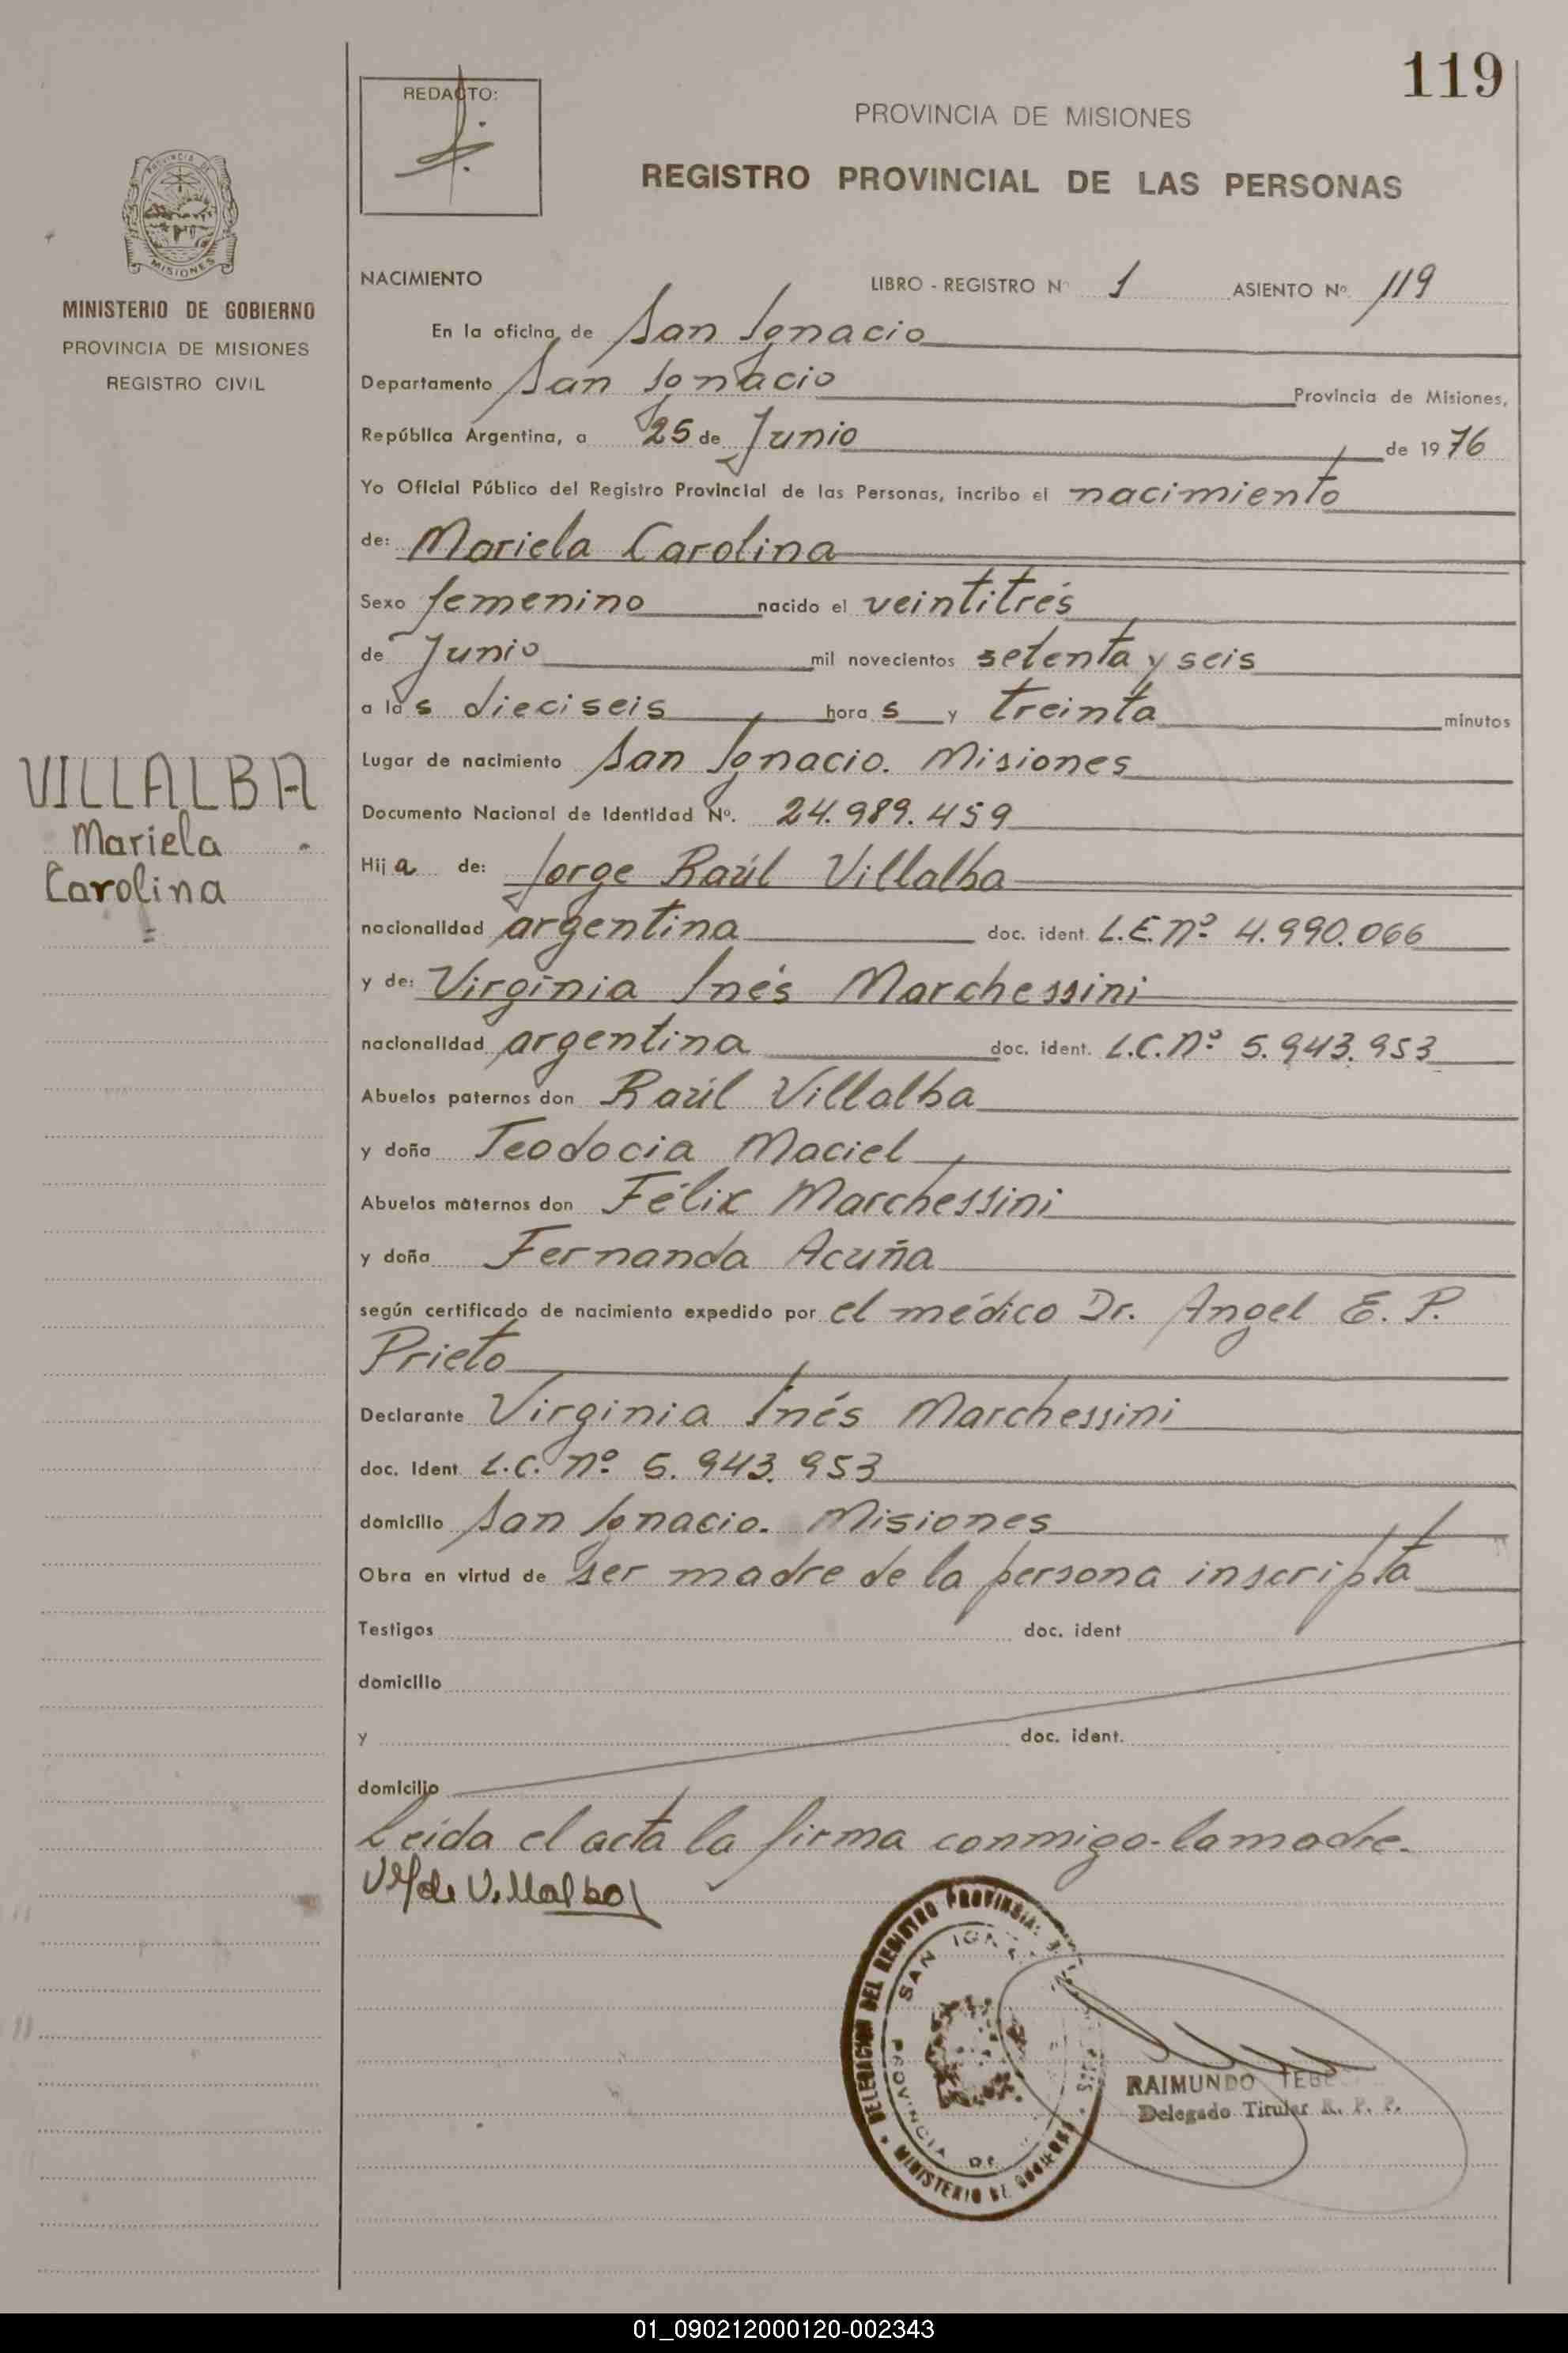 119
REDACTO:
PROVINCIA DE MISIONES
REGISTRO PROVINCIAL DE LAS PERSONAS
MISIONES
MINISTERIO DE GOBIERNO
PROVINCIA DE MISIONES
REGISTRO CIVIL
NACIMIENTO LIBRO - REGISTRO Nº 1 ASIENTO Nº 119
En la oficina de San Ignacio
Departamento San Ignacio Provincia de Misiones,
República Argentina, a 25 de Junio de 1976
Yo Oficial Público del Registro Provincial de las Personas, incribo el nacimiento
de: Mariela Carolina
Sexo femenino nacido el veintitrés
de Junio mil novecientos setenta y seis
a las dieciseis horas y treinta minutos
Lugar de nacimiento San Ignacio. Misiones
VILLALBA
Mariela
Carolina
Documento Nacional de Identidad Nº. 24.989.459
Hija de: Jorge Raúl Villalba
nacionalidad argentina doc. ident. L.E. nº 4.990.066
y de: Virginia Inés Marchessini
nacionalidad argentina doc. ident. L.C. nº 5.943.953
Abuelos paternos don Raúl Villalba
y doña Teodocia Maciel
Abuelos maternos don Félix Marchessini
y doña Fernanda Acuña
según certificado de nacimiento expedido por el médico Dr. Angel E. P.
Prieto
Declarante Virginia Inés Marchessini
doc. Ident L.C. nº 5.943.953
domicilio San Ignacio. Misiones
Obra en virtud de ser madre de la persona inscripta
Testigos doc. ident
domicilio
y doc. ident.
domicilio
Leída el acta la firma conmigo la madre.
de Villalba
DELEGACION DEL REGISTRO PROVINCIAL
SAN
PROVINCIA DE
MINISTERIO DE GOBIERNO
RAIMUNDO
Delegado Titular R. P. P.
01_090212000120-002343